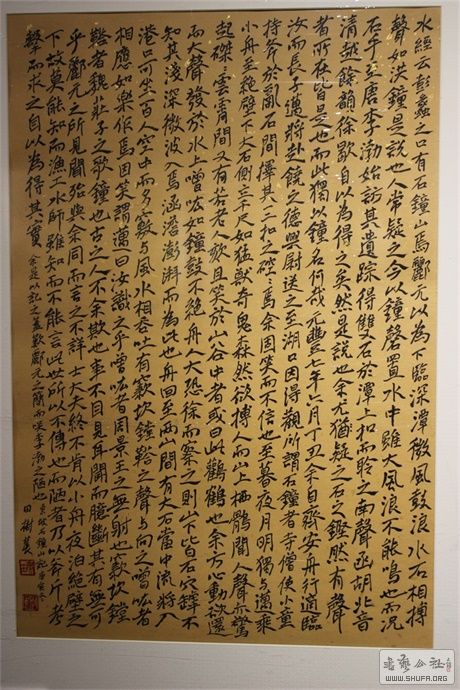 水經云彭蠡之口有石鐘山焉酈元以為下臨深潭微風鼓浪水石相搏
聲如洪鐘是說也人常疑之今以鐘磬置水中雖大風浪不能鳴也而況
石乎至唐李渤始訪其遺踪得雙石於潭上扣而聆之南聲函胡北音
清越餘韻徐歇自以為得之矣然是說也余尤猶疑之石之鏗然有聲
者所在皆是也而此獨以鐘名何哉元豐七年六月丁丑余自齊安舟行適臨
汝而長子邁將赴饒之德興尉送之至湖口因得觀所謂石鐘者寺僧使小童
持斧於亂石間擇其一二扣之硿硿焉余固笑而不信也至暮夜月明獨與邁乘
小舟至絕壁下大石側立千尺如猛獸奇鬼森然欲搏人而山上栖鶻聞人聲亦驚
起磔磔雲霄間又有若老人欬且笑於山谷中者或曰此鸛鶴也余方心動欲還
而大聲發於水上噌吰如鐘鼓不絕舟人大恐徐而察之則山下皆石穴罅不
知其淺深微波入焉涵澹澎湃而為此也舟回至兩山間有大石當中流將入
港口可坐百人空中而多竅與風水相吞吐有窾坎鏜鞳之聲與向之噌吰者
相應如樂作焉因笑謂邁曰汝識之乎噌吰者周景王之無射也窾坎鏜
鞳者魏莊子之歌鐘也古之人不余欺也事不目見耳聞而臆斷其有無可
乎酈元之所見聞殆與余同而言之不詳士大夫終不肯以小舟夜泊絕壁之
下故莫能知而漁工水師雖知而不能言此世所以不傳也而陋者乃以斧斤考
擊而求之自以為得其實余是以記之蓋歎酈元之簡而笑李渤之陋也 東坡石鐘山記 田樹萇
書藝公社
WWW.SHUFA.ORG